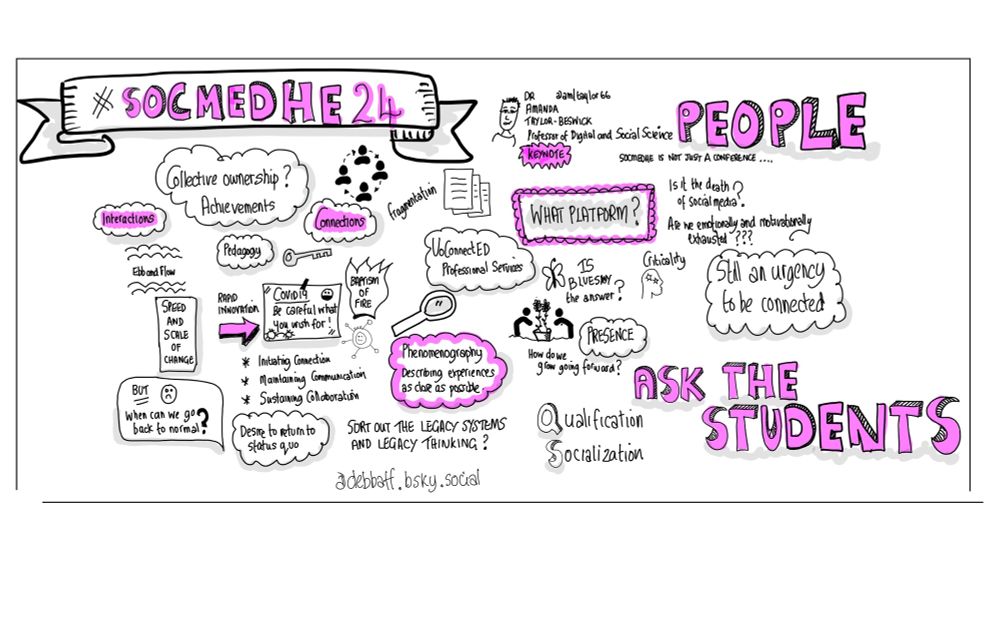 # SOCMEDHE24
DR @amltaylor66
AMANDA
TAYLOR-BESWICK
Professor of Digital and Social Science
KEYNOTE
PEOPLE
SOCMEDHE IS NOT JUST A CONFERENCE....
Collective ownership?
Achievements
Interactions
Connections
fragmentation
WHAT PLATFORM?
Is it the death
of social media?
Are we emotionally and motivationally
exhausted ???
Pedagogy
Ebb and Flow
UoConnectED
Professional Services
IS
BLUESKY
the answer?
Criticality
Still an urgency
to be connected
SPEED
AND
SCALE
OF
CHANGE
RAPID
INNOVATION
COVID19
Be careful what
you wish for!
BAPTISM
OF
FIRE
* Initiating Connection
* Maintaining Communication
* Sustaining Collaboration
Phenomenography
Describing experiences
as close as possible
How do we
grow going forward?
PRESENCE
ASK THE
STUDENTS
BUT
When can we go
back to normal?
Desire to return to
status quo
SORT OUT THE LEGACY SYSTEMS
AND LEGACY THINKING?
Qualification
Socialization
@debbaff.bsky.social